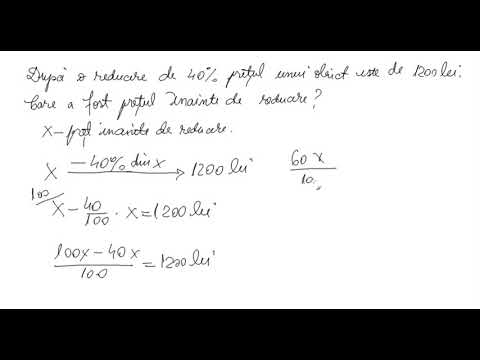 După o reducere de 40% prețul unui obiect este de 1200 lei.
Care a fost prețul înainte de reducere?
x – preț înainte de reducere.
x —40% din x→ 1200 lei 60x/10
100/ x - 40/100 · x = 1200 lei
100x - 40x/100 = 1200 lei